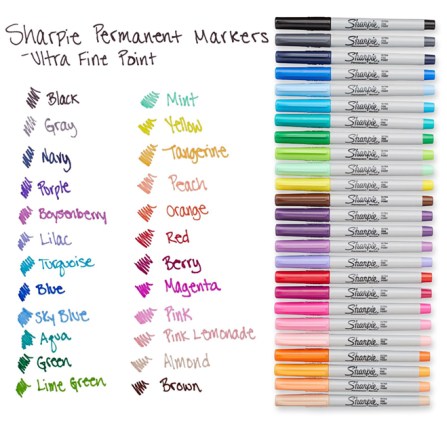 Sharpie Permanent Markers
-Ultra Fine Point
Black
Gray
Navy
Purple
Boysenberry
Lilac
Turquoise
Blue
Sky Blue
Aqua
Green
Lime Green
Mint
Yellow
Tangerine
Peach
Orange
Red
Berry
Magenta
Pink
Pink Lemonade
Almond
Brown
Sharpie
Sharpie
Sharpie
Sharpie
Sharpie
Sharpie
Sharpie
Sharpie
Sharpie
Sharpie
Sharpie
Sharpie
Sharpie
Sharpie
Sharpie
Sharpie
Sharpie
Sharpie
Sharpie
Sharpie
Sharpie
Sharpie
Sharpie
Sharpie